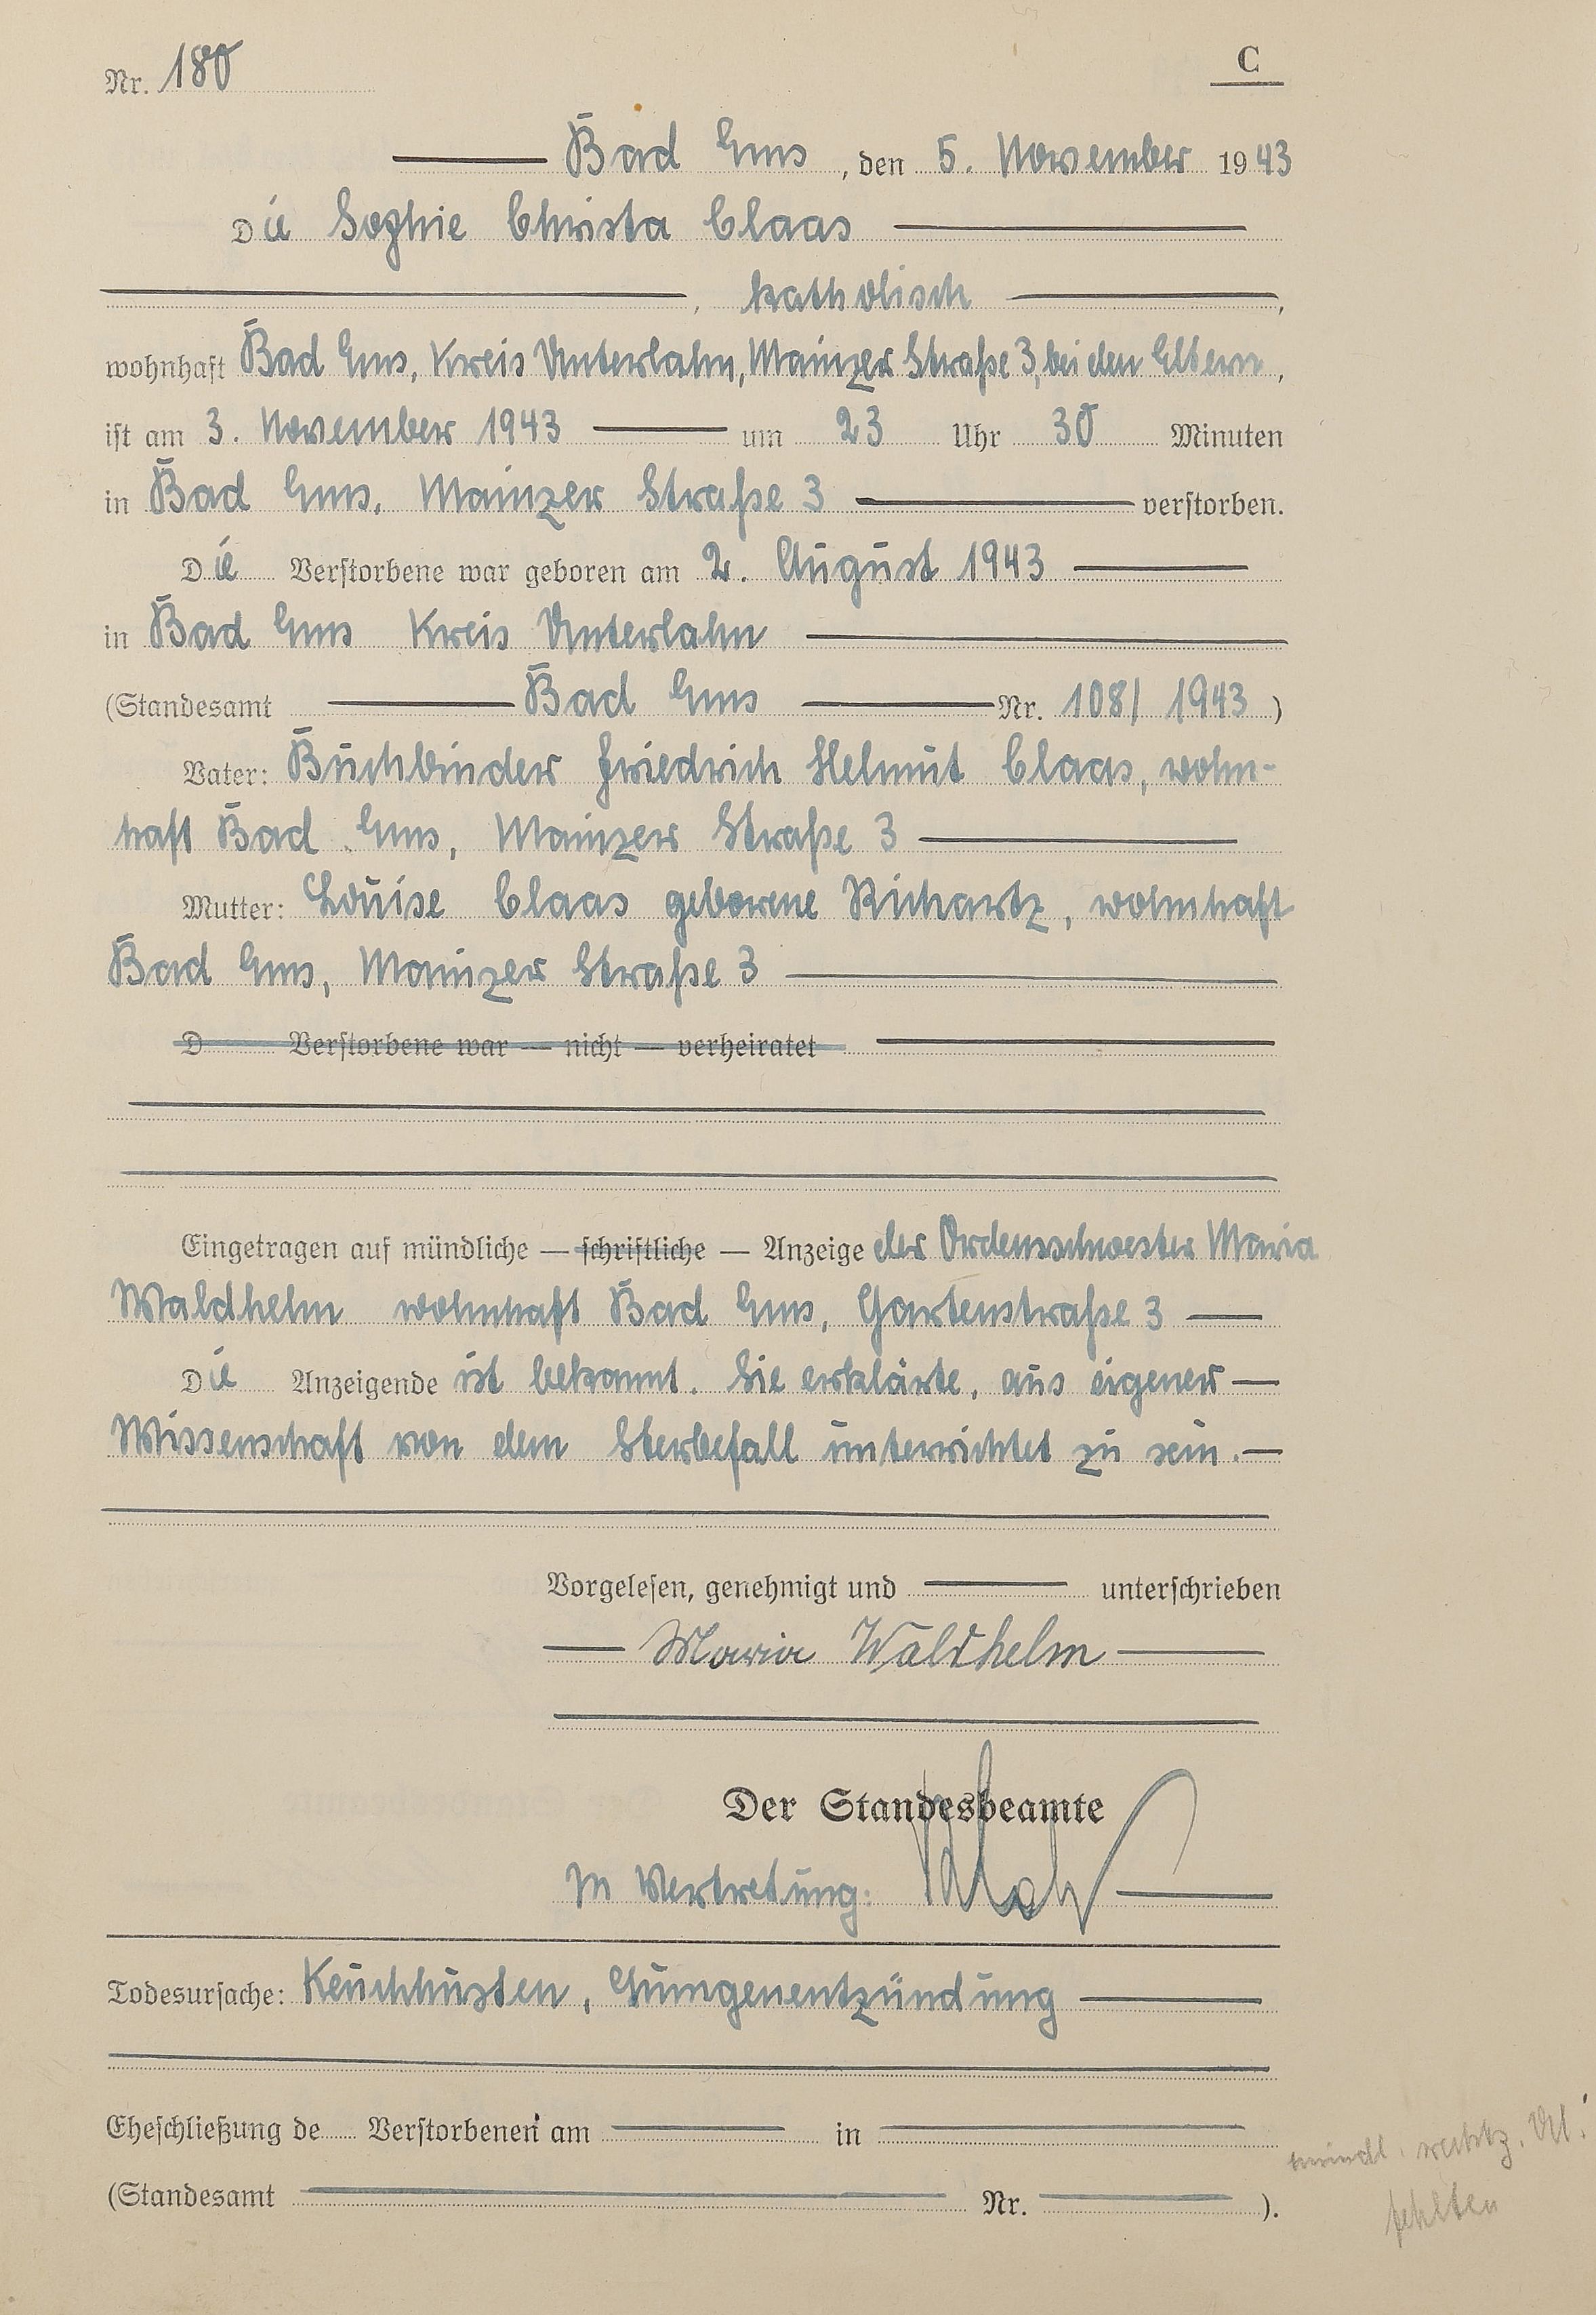 Nr. 180
C
Bad Ems, den 5. November 1943
Die Sophie Christa Claas
, katholisch,
wohnhaft Bad Ems, Kreis Unterlahn, Mainzer Straße 3, bei den Eltern,
ist am 3. November 1943 um 23 Uhr 30 Minuten
in Bad Ems, Mainzer Straße 3 verstorben.
Die Verstorbene war geboren am 2. August 1943
in Bad Ems Kreis Unterlahn
(Standesamt Bad Ems Nr. 108/1943)
Vater: Buchbinder Friedrich Helmut Claas, wohn-
haft Bad Ems, Mainzer Straße 3
Mutter: Louise Claas geborene Richartz, wohnhaft
Bad Ems, Mainzer Straße 3
D Verstorbene war — nicht — verheiratet
Eingetragen auf mündliche — schriftliche — Anzeige der Ordensschwester Maria
Waldhelm wohnhaft Bad Ems, Gartenstraße 3
Die Anzeigende ist bekannt. Sie erklärte, aus eigener
Wissenschaft von dem Sterbefall unterrichtet zu sein.
Vorgelesen, genehmigt und unterschrieben
Maria Waldhelm
Der Standesbeamte
In Vertretung:
Todesursache: Keuchhusten, Lungenentzündung
Eheschließung de Verstorbenen am in
(Standesamt Nr. ).
fehlten